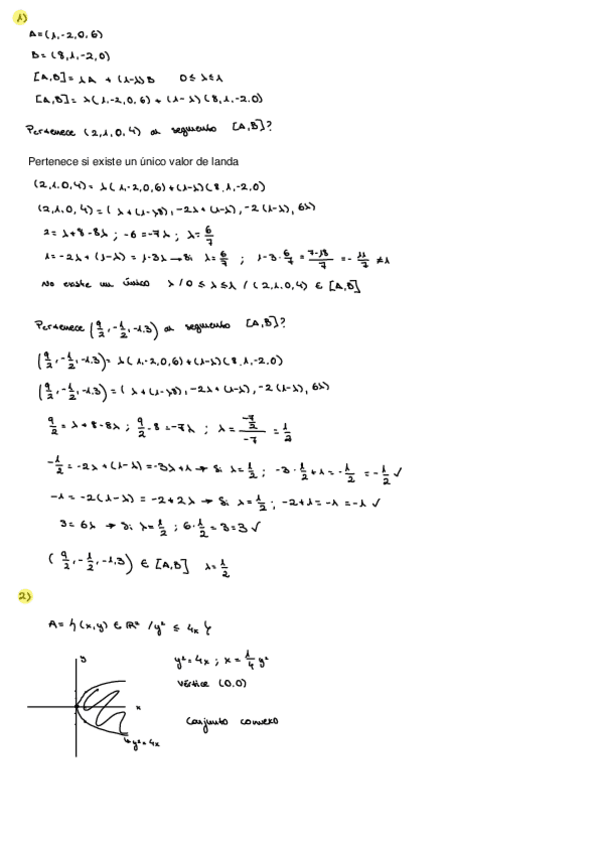 1)
A=(1,-2,0,6)
B=(8,1,-2,0)
[A,B]=λA + (1-λ)B 0≤λ≤1
[A,B]=λ(1,-2,0,6)+(1-λ)(8,1,-2,0)
Pertenece (2,1,0,4) al segmento [A,B]?
Pertenece si existe un único valor de landa
(2,1,0,4)=λ(1,-2,0,6)+(1-λ)(8,1,-2,0)
(2,1,0,4)=(λ+(1-λ8),-2λ+(1-λ),-2(1-λ),6λ)
2=λ+8-8λ; -6=-7λ; λ=6/7
1=-2λ+(1-λ)=1-3λ→Si λ=6/7; 1-3·6/7=7-18/7=-11/7≠1
No existe un único λ/0≤λ≤1/(2,1,0,4)∈[A,B]
Pertenece (9/2,-1/2,-1,3) al segmento [A,B]?
(9/2,-1/2,-1,3)=λ(1,-2,0,6)+(1-λ)(8,1,-2,0)
(9/2,-1/2,-1,3)=(λ+(1-λ8),-2λ+(1-λ),-2(1-λ),6λ)
9/2=λ+8-8λ; 9/2-8=-7λ; λ=-7/2/-7=1/2
-1/2=-2λ+(1-λ)=-3λ+1→Si λ=1/2; -3·1/2+1=-1/2=-1/2✓
-1=-2(1-λ)=-2+2λ→Si λ=1/2; -2+1=-1=-1✓
3=6λ→Si λ=1/2; 6·1/2=3=3✓
(9/2,-1/2,-1,3)∈[A,B] λ=1/2
2)
A={(x,y)∈ℝ²/y²≤4x}
y²=4x; x=1/4y²
Vértice (0,0)
Conjunto convexo
y
x
y²=4x